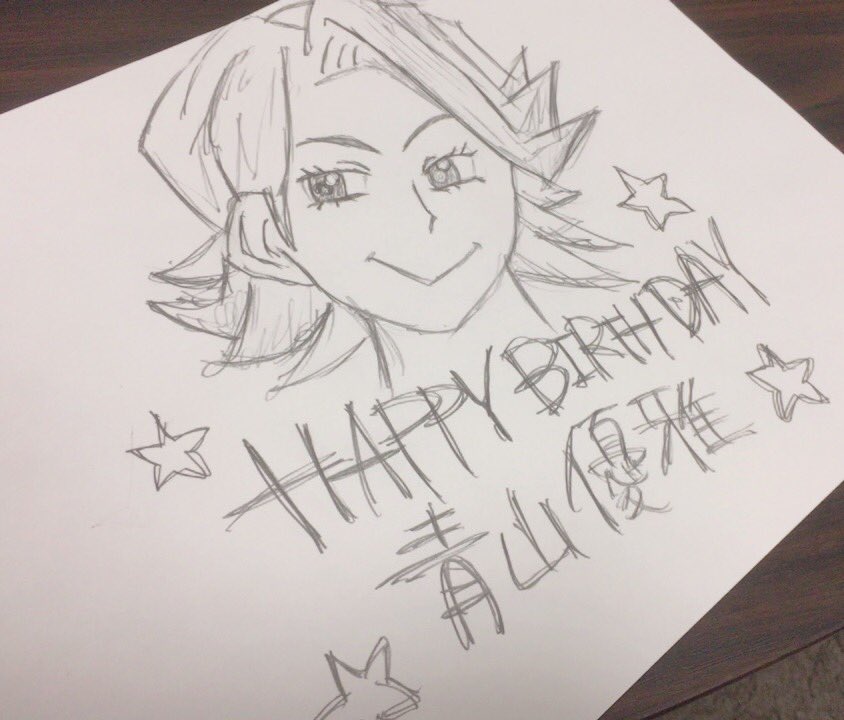 HAPPY BIRTHDAY
青山優雅